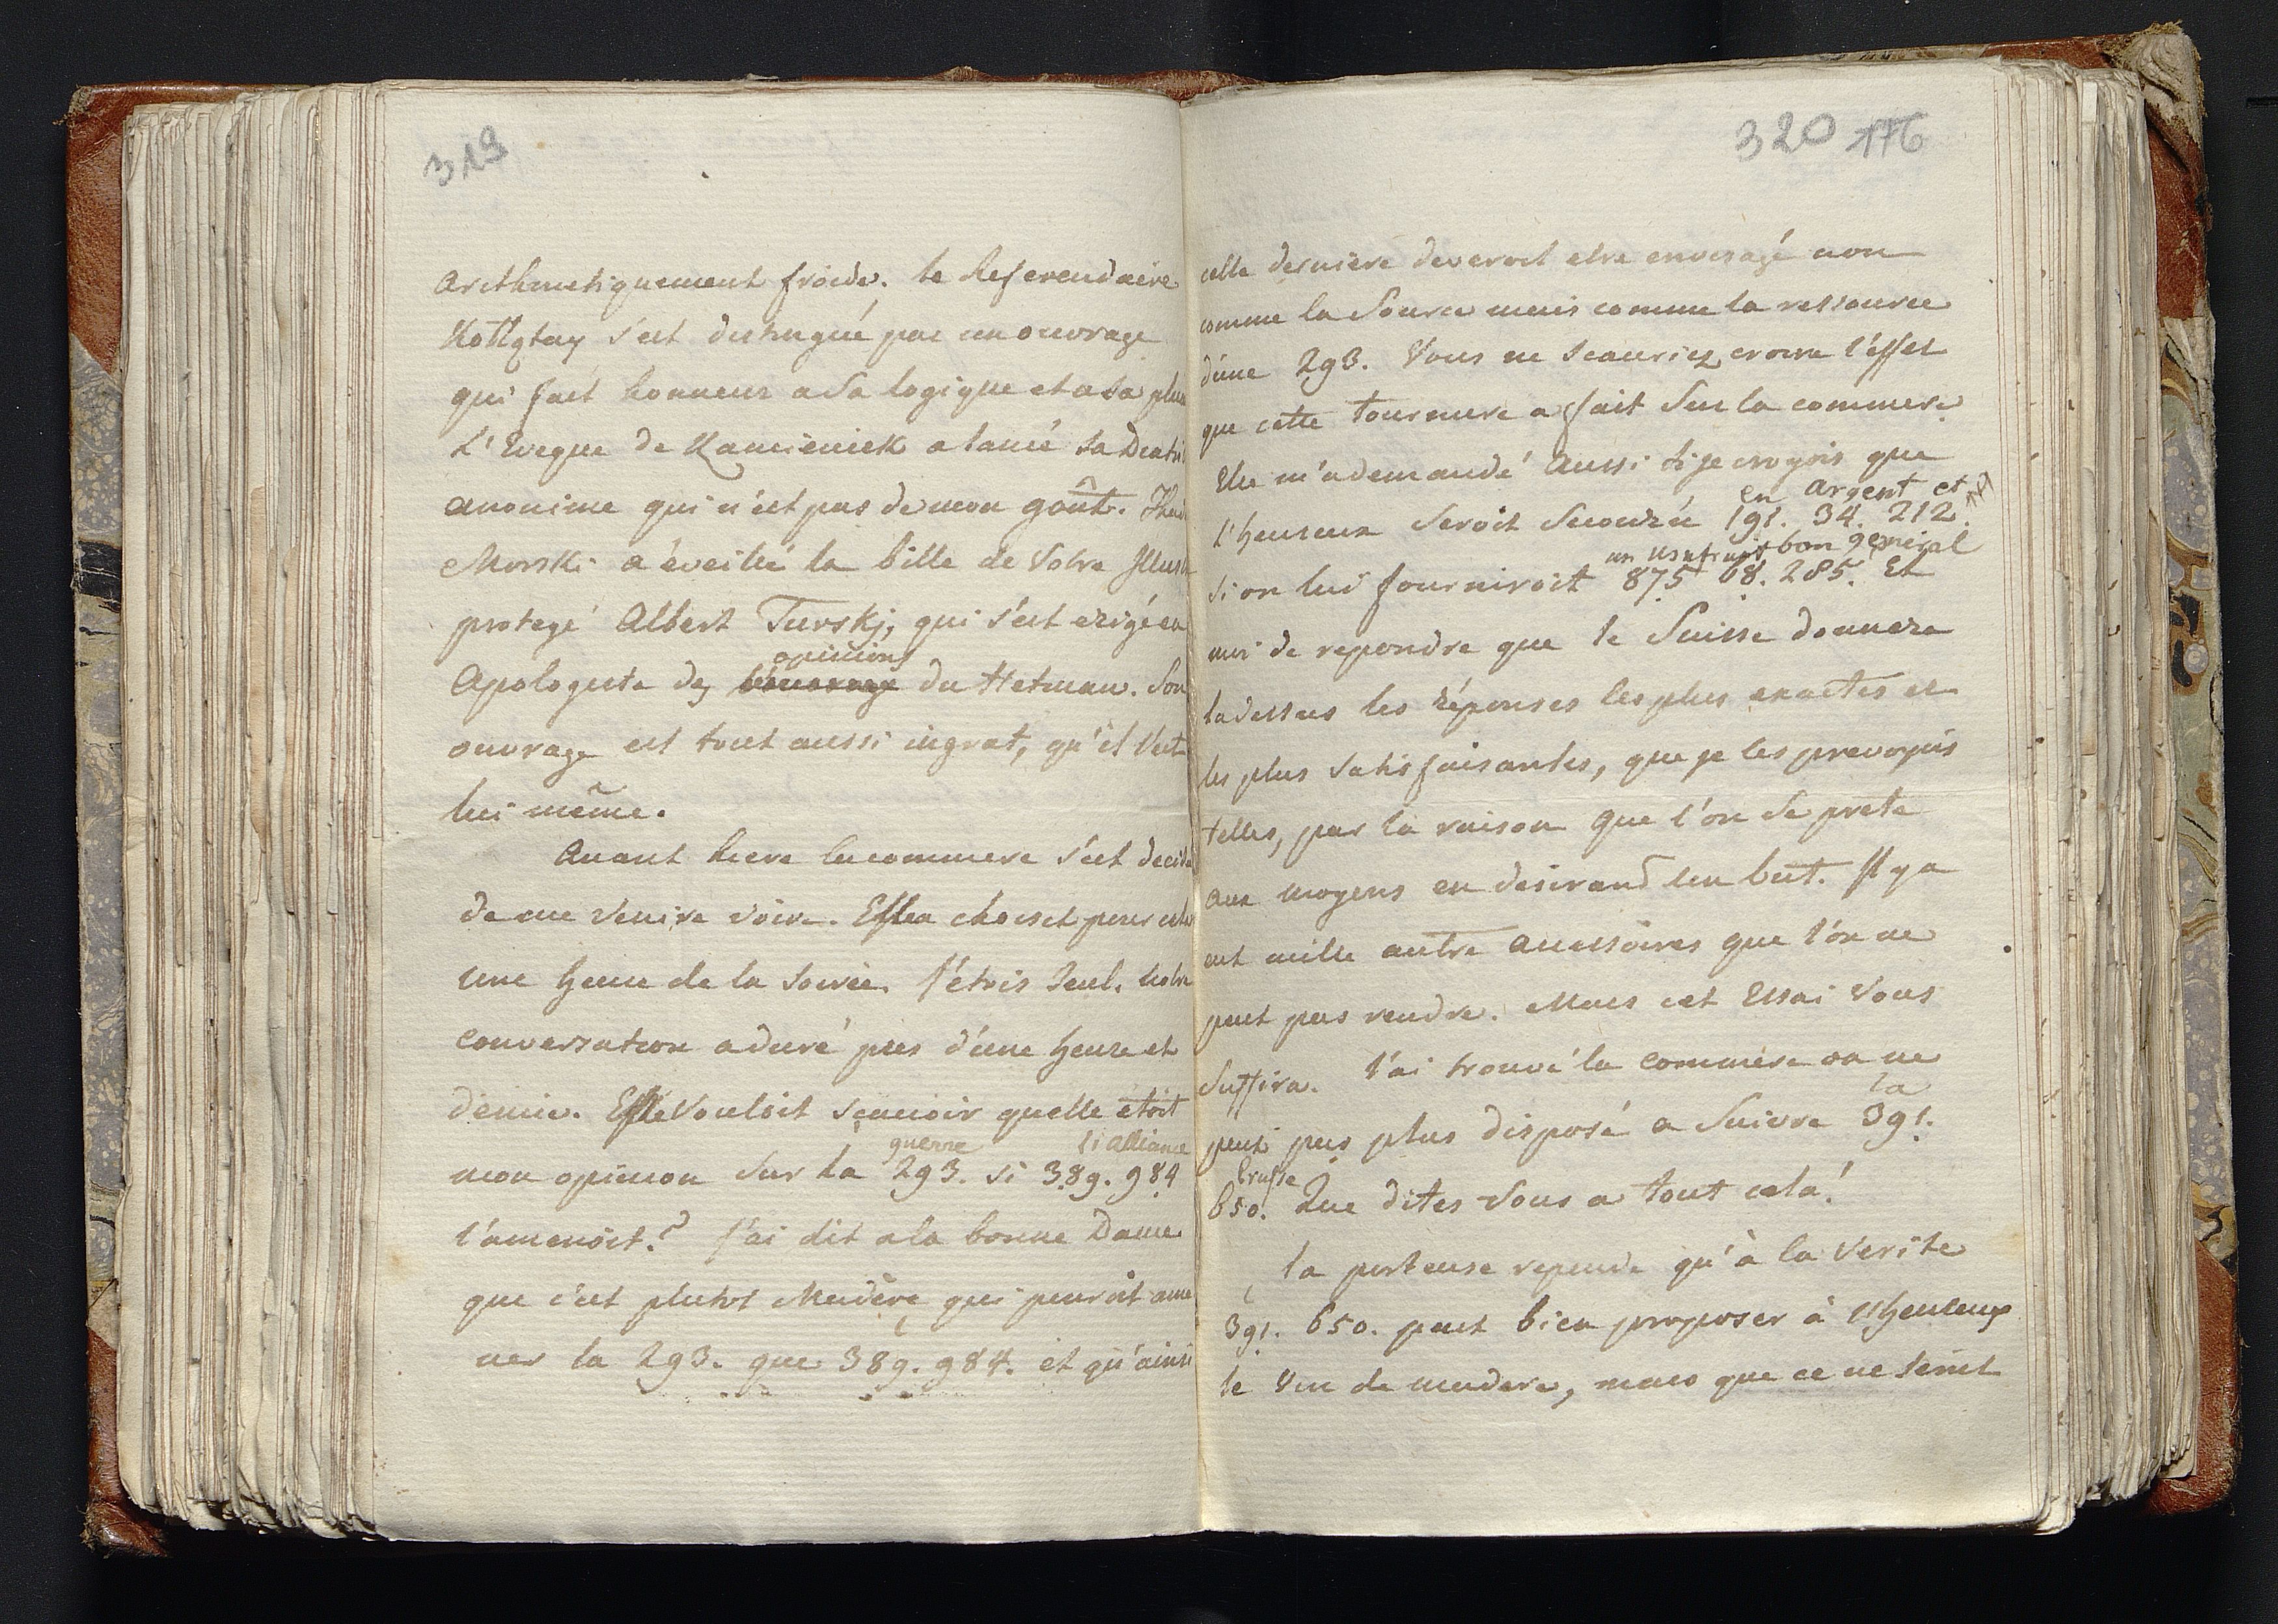 319
Arithmetiquement froide. le Referendaire
Kołłątay s'est distingué par un ouvrage
qui fait honneur a sa logique et a sa plu
L'Eveque de Kamieniek a lancé sa
anonime qui n'est pas de mon goût.
Morski a éveillé la bille de Votre Illust
protegé Albert Turskj, qui s'est erigé en
opinions
Apologiste des du Hetman. Son
ouvrage est tout aussi ingrat, qu'il l'est
lui même.
Avant hiere la commere s'est decidé
de me venire voire. Elle a choisit pour cela
une heure de la soirée. J'étois seul. notre
conversation a duré pres d'une heure et
demie. Elle Vouloit scavoir quelle étoit
guerre li alliance
mon opinion sur la 293. si 389. 984
l'amenoit? J'ai dit a la bonne Dame
que c'est plutot Madère qui pouroit ame
ner la 293. que 389. 984. et qu'ainsi
320 176
cette derniere deveroit etre envisagé non
comme la Source mais comme la ressource
d'une 293. Vous ne scauriez croire l'effet
que cette tournure a fait sur la commere
Elle m'a demandé Aussi si je croyois que
en argent et
l'heureux seroit secouru 191. 34. 212.
un usufruit bon general
si on lui fourniroit 875 68. 285. Et
moi de repondre que le Suisse donnera
la dessus les réponses les plus exactes et
les plus satisfaisantes, que je les prevoyois
telles, par la raison que l'on se prete
aux moyens en desirand un but. Il y a
eut mille autre accessoires que l'on ne
peut pas rendre. Mais cet Essai Vous
suffira. J'ai trouvé la commère on ne
la
peut pas plus disposé a suivre 391.
Prusse
650. Que dites Vous a tout cela!
la porteuse repende qu'à la verite
391. 650. peut bien proposer à l'heureux
le Vin de madere, mais que ce ne seroit